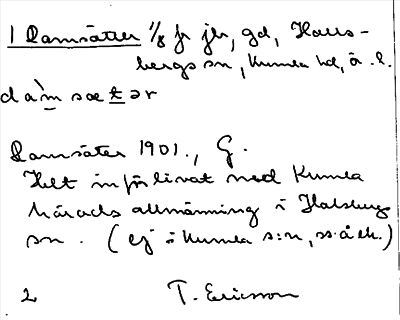 1 Damsätter 1/8 fr jb, gd, Hals-
bergs sn, Kumla hd, ö. l.
dam sæ t ər
Damsäter 1901., G.
Helt införlivat med Kumla
härads allmänning i Halsbergs
sn. (ej i Kumla s:n, ss å ek.)
2 T. Ericsson